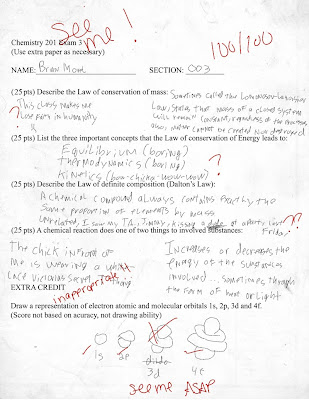 see me!
Chemistry 201 Exam 3
(Use extra paper as necessary)
100/100
NAME: Brow Mond SECTION: 003
(25 pts) Describe the Law of conservation of mass: Sometimes called the Lomonosov-Lavoisier
This class makes me Law, states that mass of a closed system
lose faith in humanity will remain constant, regardless of the processes
also, matter cannot be created nor destroyed
(25 pts) List the three important concepts that the Law of conservation of Energy leads to:
Equilibrium (boring)
thermodynamics (boring)
Kinetics (bom-chicka-wow-wow)
(25 pts) Describe the Law of definite composition (Dalton's Law):
A chemical compound always contains exactly the
same proportion of elements by mass
Unrelated, I saw my TA, Jimmy, kissing a dude at a party last Friday
??
(25 pts) A chemical reaction does one of two things to involved substances:
The chick in front of Increases or decreases the
me is wearing a white energy of the substances
lace Victorias Secret thong involved... sometimes through
the form of heat or light
inappropriate
EXTRA CREDIT
Draw a representation of electron atomic and molecular orbitals 1s, 2p, 3d and 4f.
(Score not based on acuracy, not drawing ability)
1s 2p 3d 4f
see me ASAP